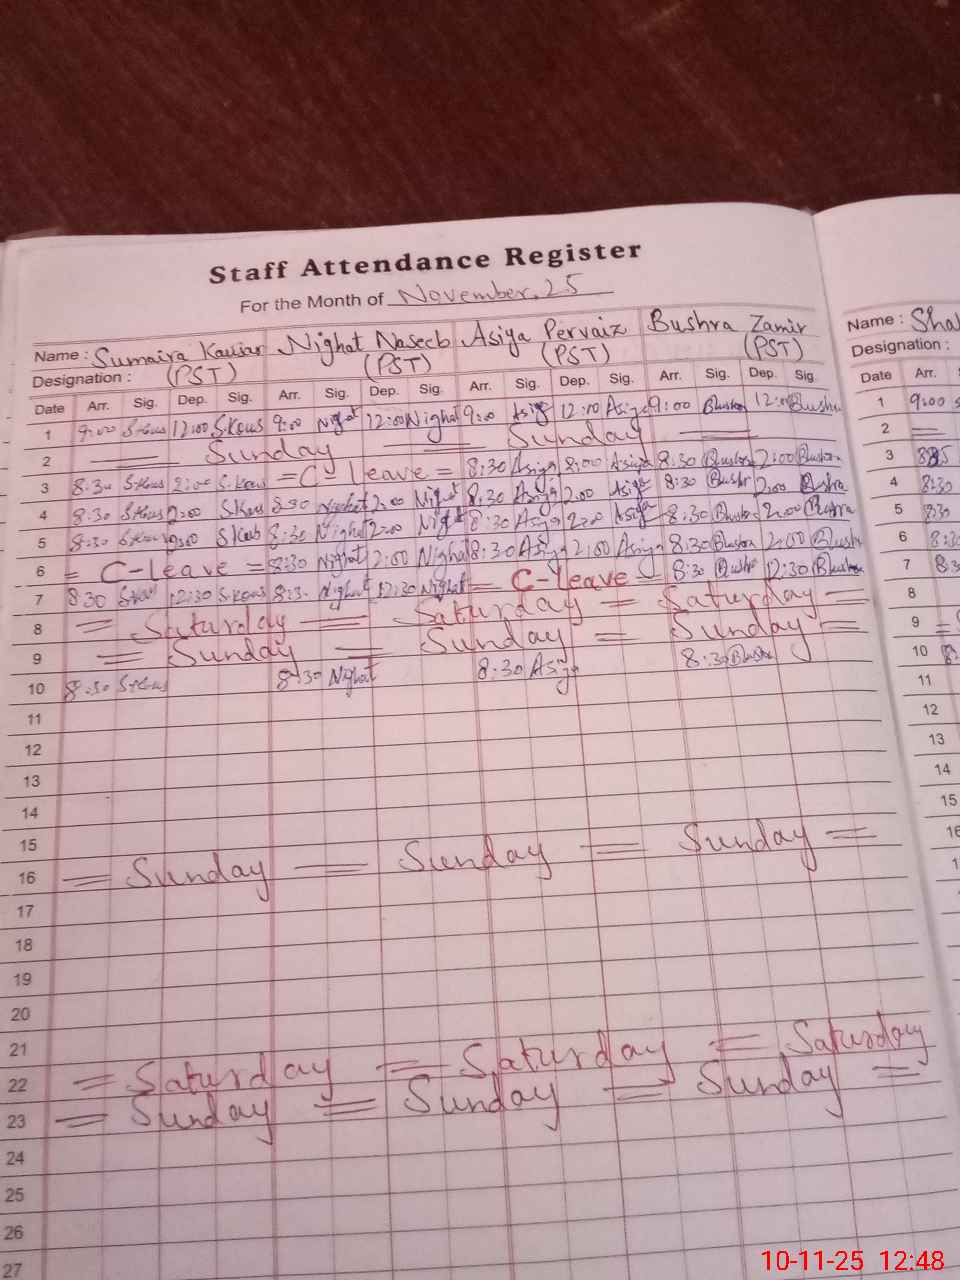 Staff Attendance Register
For the Month of November, 25
Name : Sumaira Kausar Nighat Naseeb Asiya Pervaiz Bushra Zamir Name : Sha
Designation : (PST) (PST) (PST) (PST) Designation :
Date Arr. Sig. Dep. Sig. Arr. Sig. Dep. Sig. Arr. Sig. Dep. Sig. Arr. Sig. Dep. Sig. Date Arr.
1 9:00 S.Kous 12:00 S.Kous 9:00 Nighat 12:00 Nighat 9:00 Asiya 12:00 Asiya 9:00 Bushra 12:00 Bushra 1 9:00
2 = Sunday = Sunday = 2 =
3 8:30 S.Kous 2:00 S.Kous = C-leave = 8:30 Asiya 2:00 Asiya 8:30 Bushra 2:00 Bushra 3
4 8:30 S.Kous 2:00 S.Kous 8:30 Nighat 2:00 Nighat 8:30 Asiya 2:00 Asiya 8:30 Bushra 2:00 Bushra 4 8:30
5 8:30 S.Kous 2:00 S.Kous 8:30 Nighat 2:00 Nighat 8:30 Asiya 2:00 Asiya 8:30 Bushra 2:00 Bushra 5 8:30
6 = C-leave = 8:30 Nighat 2:00 Nighat 8:30 Asiya 2:00 Asiya 8:30 Bushra 2:00 Bushra 6 8:30
7 8:30 S.Kous 12:30 S.Kous 8:30 Nighat 12:30 Nighat = C-leave = 8:30 Bushra 12:30 Bushra 7 8:30
8 = Saturday = Saturday = Saturday = 8
9 = Sunday = Sunday = Sunday = 9 =
10 8:30 S.Kous 8:30 Nighat 8:30 Asiya 8:30 Bushra 10 8:
11 11
12 12
13 13
14 14
15 15
16 = Sunday = Sunday = Sunday = 16
17
18
19
20
21
22 = Saturday = Saturday = Saturday
23 = Sunday = Sunday = Sunday =
24
25
26
27
10-11-25 12:48